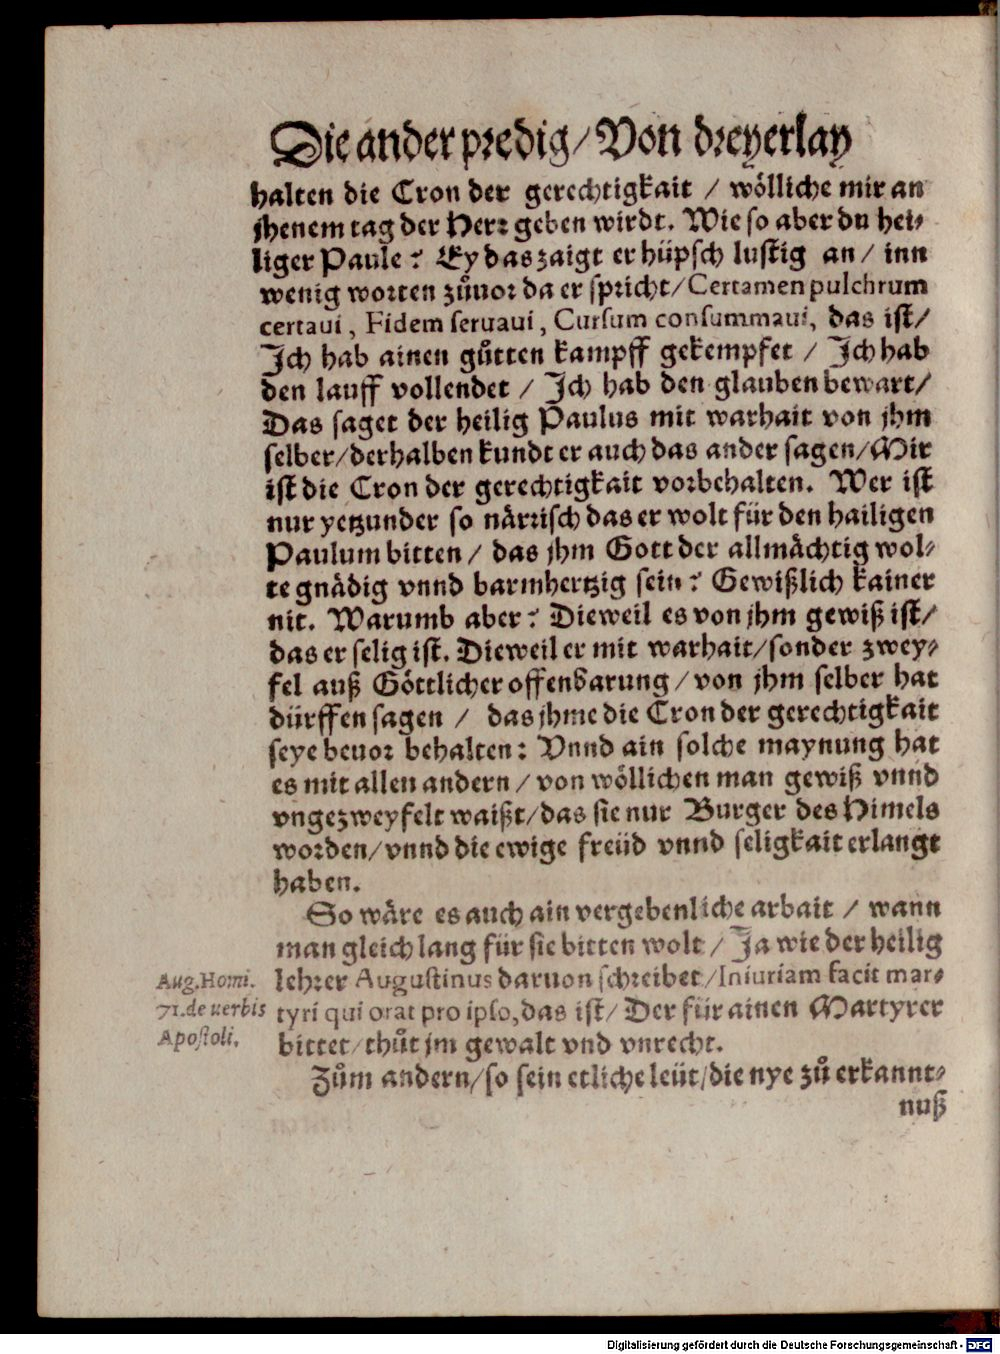 Die ander predig/ Von dreyerlay
halten die Cron der gerechtigkait / wölliche mir an
jhenem tag der Herr geben wirdt. Wie so aber du hei-
liger Paule? Ey das zaigt er hüpsch lustig an/ inn
wenig worten zůuor da er spricht/ Certamen pulchrum
certaui, Fidem seruaui, Cursum consummaui, das ist/
Ich hab ainen gůtten kampff gekempfet / Ich hab
den lauff vollendet / Ich hab den glauben bewart/
Das saget der heilig Paulus mit warhait von jhm
selber/derhalben kundt er auch das ander sagen/Mir
ist die Cron der gerechtigkait vorbehalten. Wer ist
nur yetzunder so närrisch das er wolt für den hailigen
Paulum bitten/ das jhm Gott der allmächtig wol-
te gnädig vnnd barmhertzig sein? Gewißlich kainer
nit. Warumb aber? Dieweil es von jhm gewiß ist/
das er selig ist. Dieweil er mit warhait/sonder zwey-
fel auß Göttlicher offenbarung/von jhm selber hat
dürffen sagen / das jhme die Cron der gerechtigkait
seye beuor behalten: Vnnd ain solche maynung hat
es mit allen andern/von wöllichen man gewiß vnnd
vngezweyfelt waißt/das sie nur Burger des Himels
worden/vnnd die ewige freüd vnnd seligkait erlangt
haben.
So wäre es auch ain vergebenliche arbait / wann
man gleich lang für sie bitten wolt/ Ja wie der heilig
lehrer Augustinus daruon schreibet/Iniuriam facit mar-
tyri qui orat pro ipso, das ist/ Der für ainen Martyrer
bittet/thůt jm gewalt vnd vnrecht.
Aug. Homi.
71. de verbis
Apostoli.
Zům andern/so sein etliche leüt/die nye zů erkannt-
nuß
Digitalisierung gefördert durch die Deutsche Forschungsgemeinschaft - DFG